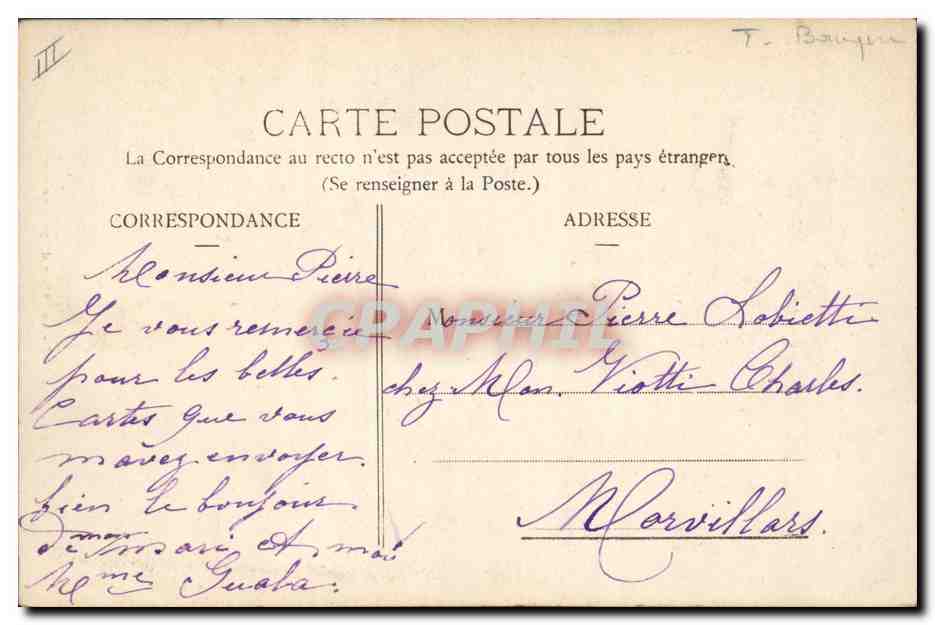 III
T.
CARTE POSTALE
La Correspondance au recto n'est pas acceptée par tous les pays étrangers
(Se renseigner à la Poste.)
CORRESPONDANCE
Monsieur Pierre
Je vous remercie
pour les belles.
Cartes que vous
mávez envoyer.
bien le bonjour
de mon mari et moi
Mme Guala.
ADRESSE
Monsieur Pierre Lobietti
chez Mon. Viotti Charles.
Morvillars.
CPAPHIL